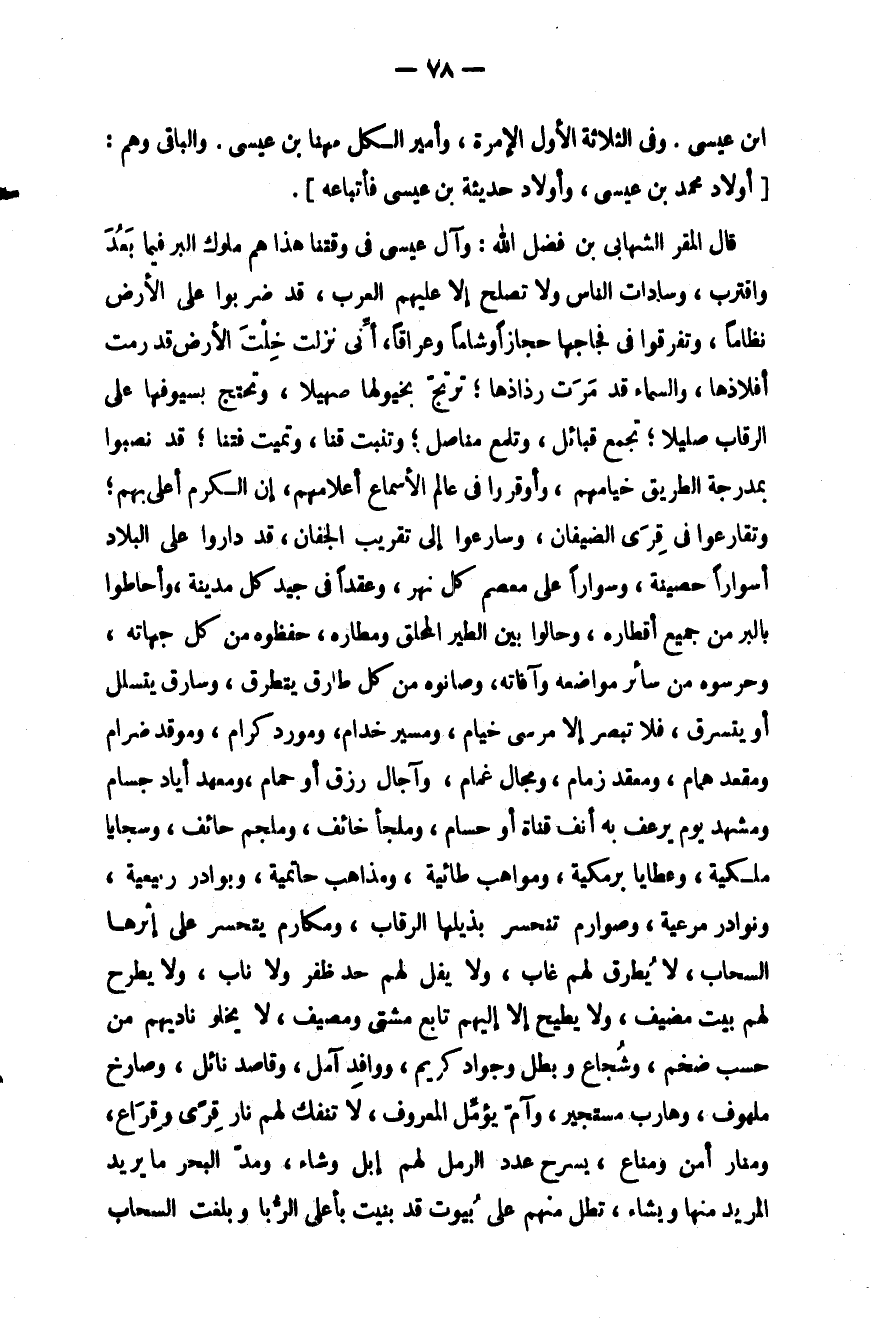 — ٧٨ —
ابن عيسى . وفى الثلاثة الأول الإمرة ، وأمير الكل مهنا بن عيسى . والباقى وهم :
[ أولاد محمد بن عيسى ، وأولاد حديثة بن عيسى فأتباعه ] .
قال المقر الشهابى بن فضل الله : وآل عيسى فى وقتنا هذا هم ملوك البر فيما بَعُدَ
واقترب ، وسادات الناس ولا تصلح إلا عليهم العرب ، قد ضربوا على الأرض
نظاماً ، وتفرقوا فى فجاجها حجازاً وشاماً وعراقاً، أنَّى نزلت خِلْتَ الأرض قد رمت
أفلاذها ، والسماء قد مَرَت رذاذها ؛ ترتجّ بخيولها صهيلا ، وتحتج بسيوفها على
الرقاب صليلا ؛ تجمع قبائل ، وتلمع مناصل ؛ وتنبت قنا ، وتميت فتنا ؛ قد نصبوا
بمدرجة الطريق خيامهم ، وأوقروا فى عالم الأسماع أعلامهم، إن الكرم أعلى بهم؛
وتقارعوا فى قِرَى الضيفان ، وسارعوا إلى تقريب الجفان ، قد داروا على البلاد
أسواراً حصينة ، وسواراً على معصم كل نهر ، وعقداً فى جيد كل مدينة ،وأحاطوا
بالبر من جميع أقطاره ، وحالوا بين الطير المحلق ومطاره ، حفظوه من كل جهاته ،
وحرسوه من سائر مواضعه وآفاته، وصانوه من كل طارق يتطرق ، وسارق يتسلل
أو يتسرق ، فلا تبصر إلا مرسى خيام ، ومسير خدام، ومورد كرام ، وموقد ضرام
ومقعد همام ، ومعقد زمام ، ومجال غمام ، وآجال رزق أو حمام ،ومعهد أياد جسام
ومشهد يوم يرعف به أنف قناة أو حسام ، وملجأ خائف ، وملجم حائف ، وسجايا
ملكية ، وعطايا برمكية ، ومواهب طائية ، ومذاهب حاتمية ، وبوادر ربيعية ،
ونوادر مرعية ، وصوارم تنحسر بذيلها الرقاب ، ومكارم يتحسر على إثرها
السحاب ، لا يُطرق لهم غاب ، ولا يفل لهم حد ظفر ولا ناب ، ولا يطرح
لهم بيت مضيف ، ولا يطيح إلا إليهم تابع مشتى ومصيف ، لا يخلو ناديهم من
حسب ضخم ، وشُجاع و بطل وجواد كريم ، ووافدِ آمل ، وقاصد نائل ، وصارخ
ملهوف ، وهارب مستجير ، وآمّ يؤمَّل المعروف ، لا تنفك لهم نار قِرًى وقِرَاع،
ومنار أمن ومناع ، يسرح عدد الرمل لهم إبل وشاء ، ومدّ البحر ما يريد
المريد منها ويشاء ، تطل منهم على بُيوت قد بنيت بأعلى الرُّبا وبلغت السحاب